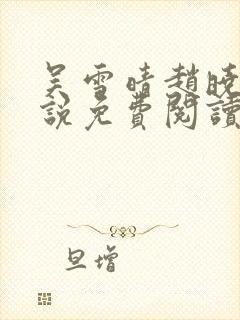 吴雪晴趙曉
說免費閱讀
旦增